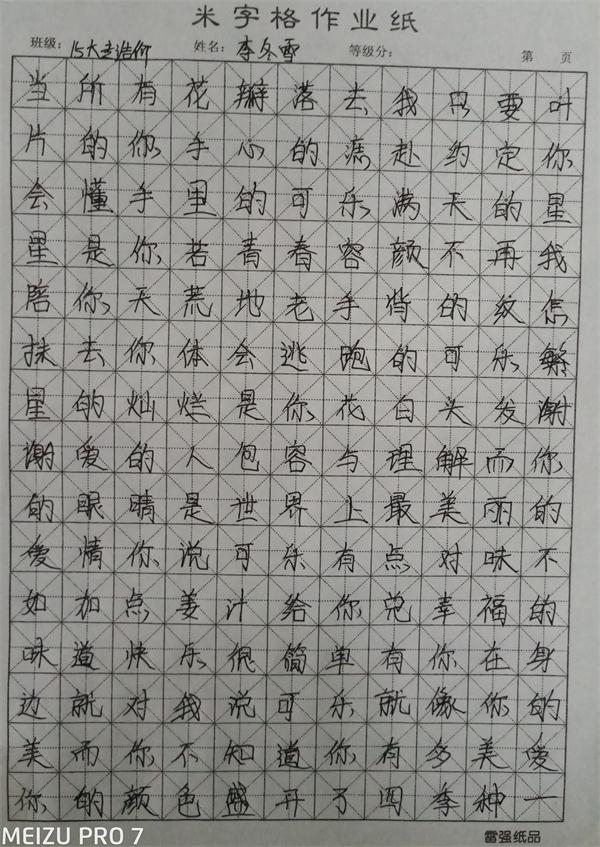 米字格作业纸
班级：15大专造价 姓名：李冬雪 等级分： 第 页
当所有花瓣落去我只要叶
片的你手心的痣赴约定你
会懂手里的可乐满天的星
星是你若青春容颜不再我
陪你天荒地老手背的纹怎
抹去你体会逃跑的可乐繁
星的灿烂是你花白头发谢
谢爱的人包容与理解而你
的眼睛是世界上最美丽的
爱情你说可乐有点对味不
如加点姜汁给你兑幸福的
味道快乐很简单有你在身
边就对我说可乐就像你的
美而你不知道你有多美爱
你的颜色盛开了四季种一
MEIZU PRO 7
雷强纸品